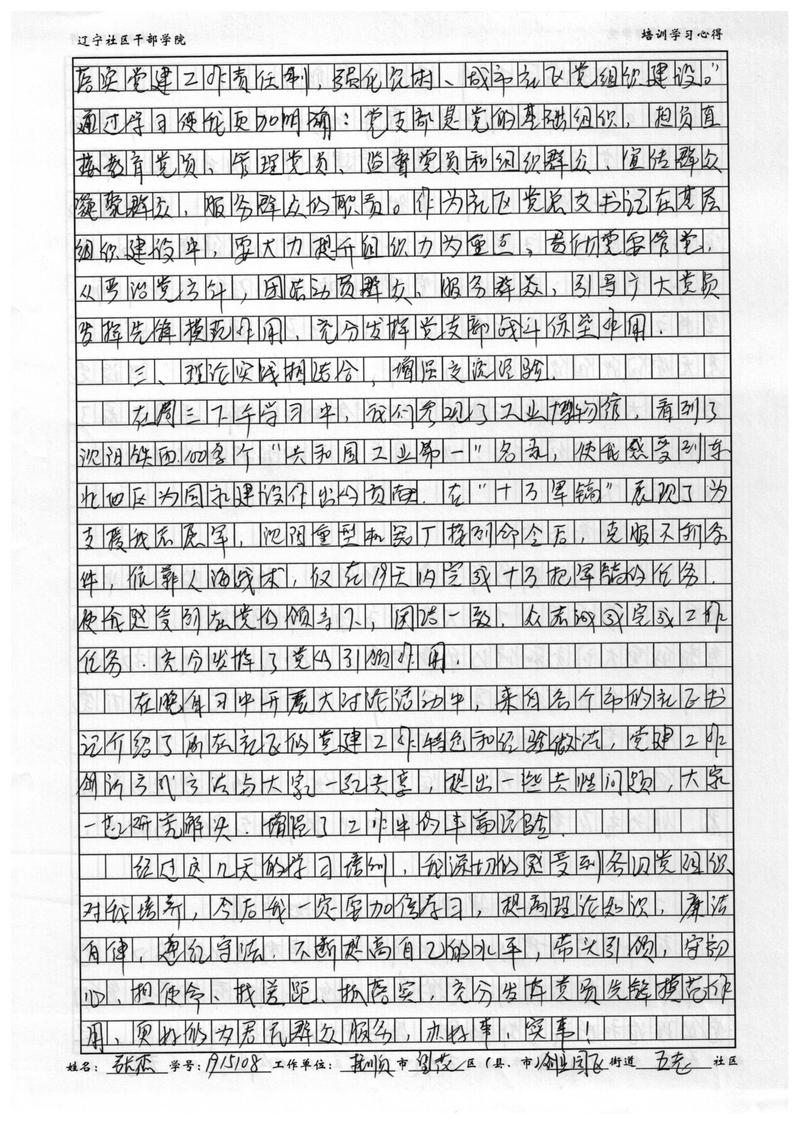 辽宁社区干部学院 培训学习心得
落实党建工作责任制，强化农村、城市社区党组织建设。"
通过学习使我更加明确：党支部是党的基础组织，担负直
接教育党员、管理党员、监督党员和组织群众、宣传群众
凝聚群众、服务群众的职责。作为社区党总支书记在基层
组织建设中，要大力提升组织力为重点，贯彻党要管党，
从严治党方针，团结动员群众、服务群众，引导广大党员
发挥先锋模范作用，充分发挥党支部战斗保垒作用．
三、理论实践相结合，增强交流经验．
在周三下午学习中，我们参观了工业博物馆，看到了
沈阳铁西100多个"共和国工业第一"名录，使我感受到东
北地区为国家建设作出的贡献．在"十万军镐"展现了为
支援我志愿军，沈阳重型机器厂接到命令后，克服不利条
件，依靠人海战术，仅在19天内完成十万把军镐的任务．
使我感受到在党的领导下，团结一致．众志成城完成工作
任务．充分发挥了党的引领作用．
在晚自习中开展大讨论活动中，来自各个市的社区书
记介绍了所在社区的党建工作特色和经验做法，党建工作
创新方式方法与大家一起共享，提出一些共性问题，大家
一起研究解决．增强了工作中的丰富经验．
经过这几天的学习培训，我深切的感受到各级党组织
对我培养，今后我一定要加倍学习，提高理论知识，廉洁
自律，遵纪守法．不断提高自己的水平，带头引领，守初
心、担使命、找差距、抓落实，充分发挥党员先锋模范作
用，更好的为居民群众服务，办好事、实事！
姓名：张杰 学号：1915108 工作单位：抚顺市 望花区（县、市）街道 五老社区